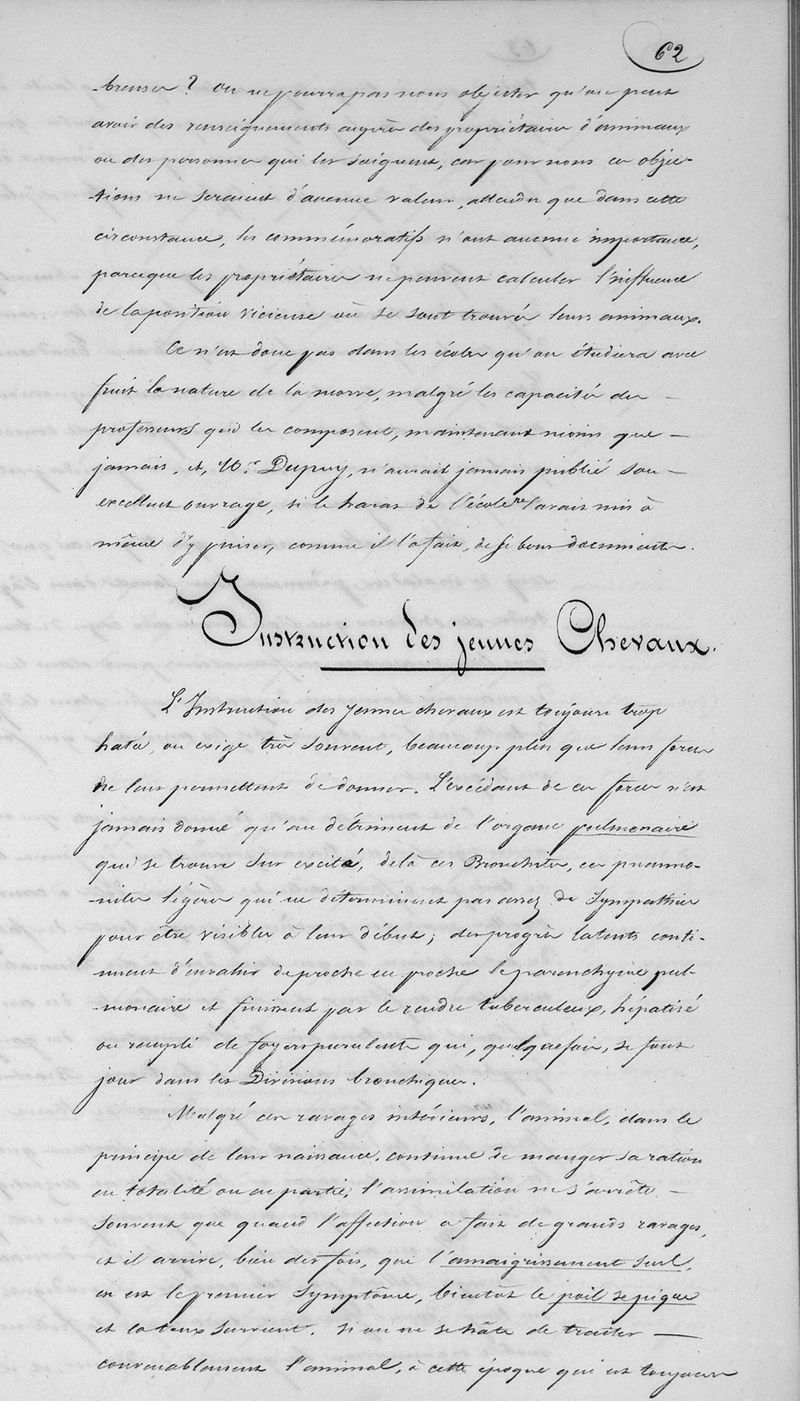 62
-breuses ? On ne pourra pas nous objecter qu'on peut
avoir des renseignements auprès des propriétaires d'animaux
ou des personnes qui les soignent, car pour nous ces objec-
-tions ne seraient d'aucune valeur, attendu que dans cette
circonstance, les commémoratifs n'ont aucune importance,
parceque les propriétaires ne peuvent calculer l'influence
de la position vicieuse où se sont trouvés leurs animaux.
Ce n'est donc pas dans les écoles qu'on étudiera avec
fruit la nature de la morve, malgré les capacités des -
professeurs qui les composent, maintenant moins que -
jamais, et, Mr. Dupuy, n'aurait jamais publié son -
excellent ouvrage, si le haras de l'école ne l'avait mis à
même d'y puiser, comme il l'a fait, de si bons documents.
Instruction des jeunes Chevaux.
L'Instruction des jeunes chevaux est toujours trop
hatée, on exige très souvent, beaucoup plus que leurs forces
ne leur permettent de donner. L'excédant de ces forces n'est
jamais donné qu'au détriment de l'organe pulmonaire
qui se trouve sur excité, delà ces Bronchites, ces pneumo-
-nites légères qui ne déterminent pas assez de Sympathies
pour être visibles à leur début; des progrès latents conti-
-nuent d'envahir de proche en proche le parenchyme pul-
-monaire et finissent par le rendre tuberculeux, hépatisé
ou rempli de foyers purulents qui, quelquefois, se font
jour dans les Divisions bronchiques.
Malgré ces ravages intérieurs, l'animal, dans le
principe de leur naissance, continue de manger sa ration
en totalité ou en partie; l'assimilation ne s'arrête -
souvent que quand l'affection a fait de grands ravages,
et il arrive, bien des fois, que l'amaigrissement seul,
en est le premier symptôme, bientôt le poil se pique
et la toux survient. Si on ne se hâte de traiter -
convenablement l'animal, à cette époque qui est toujours